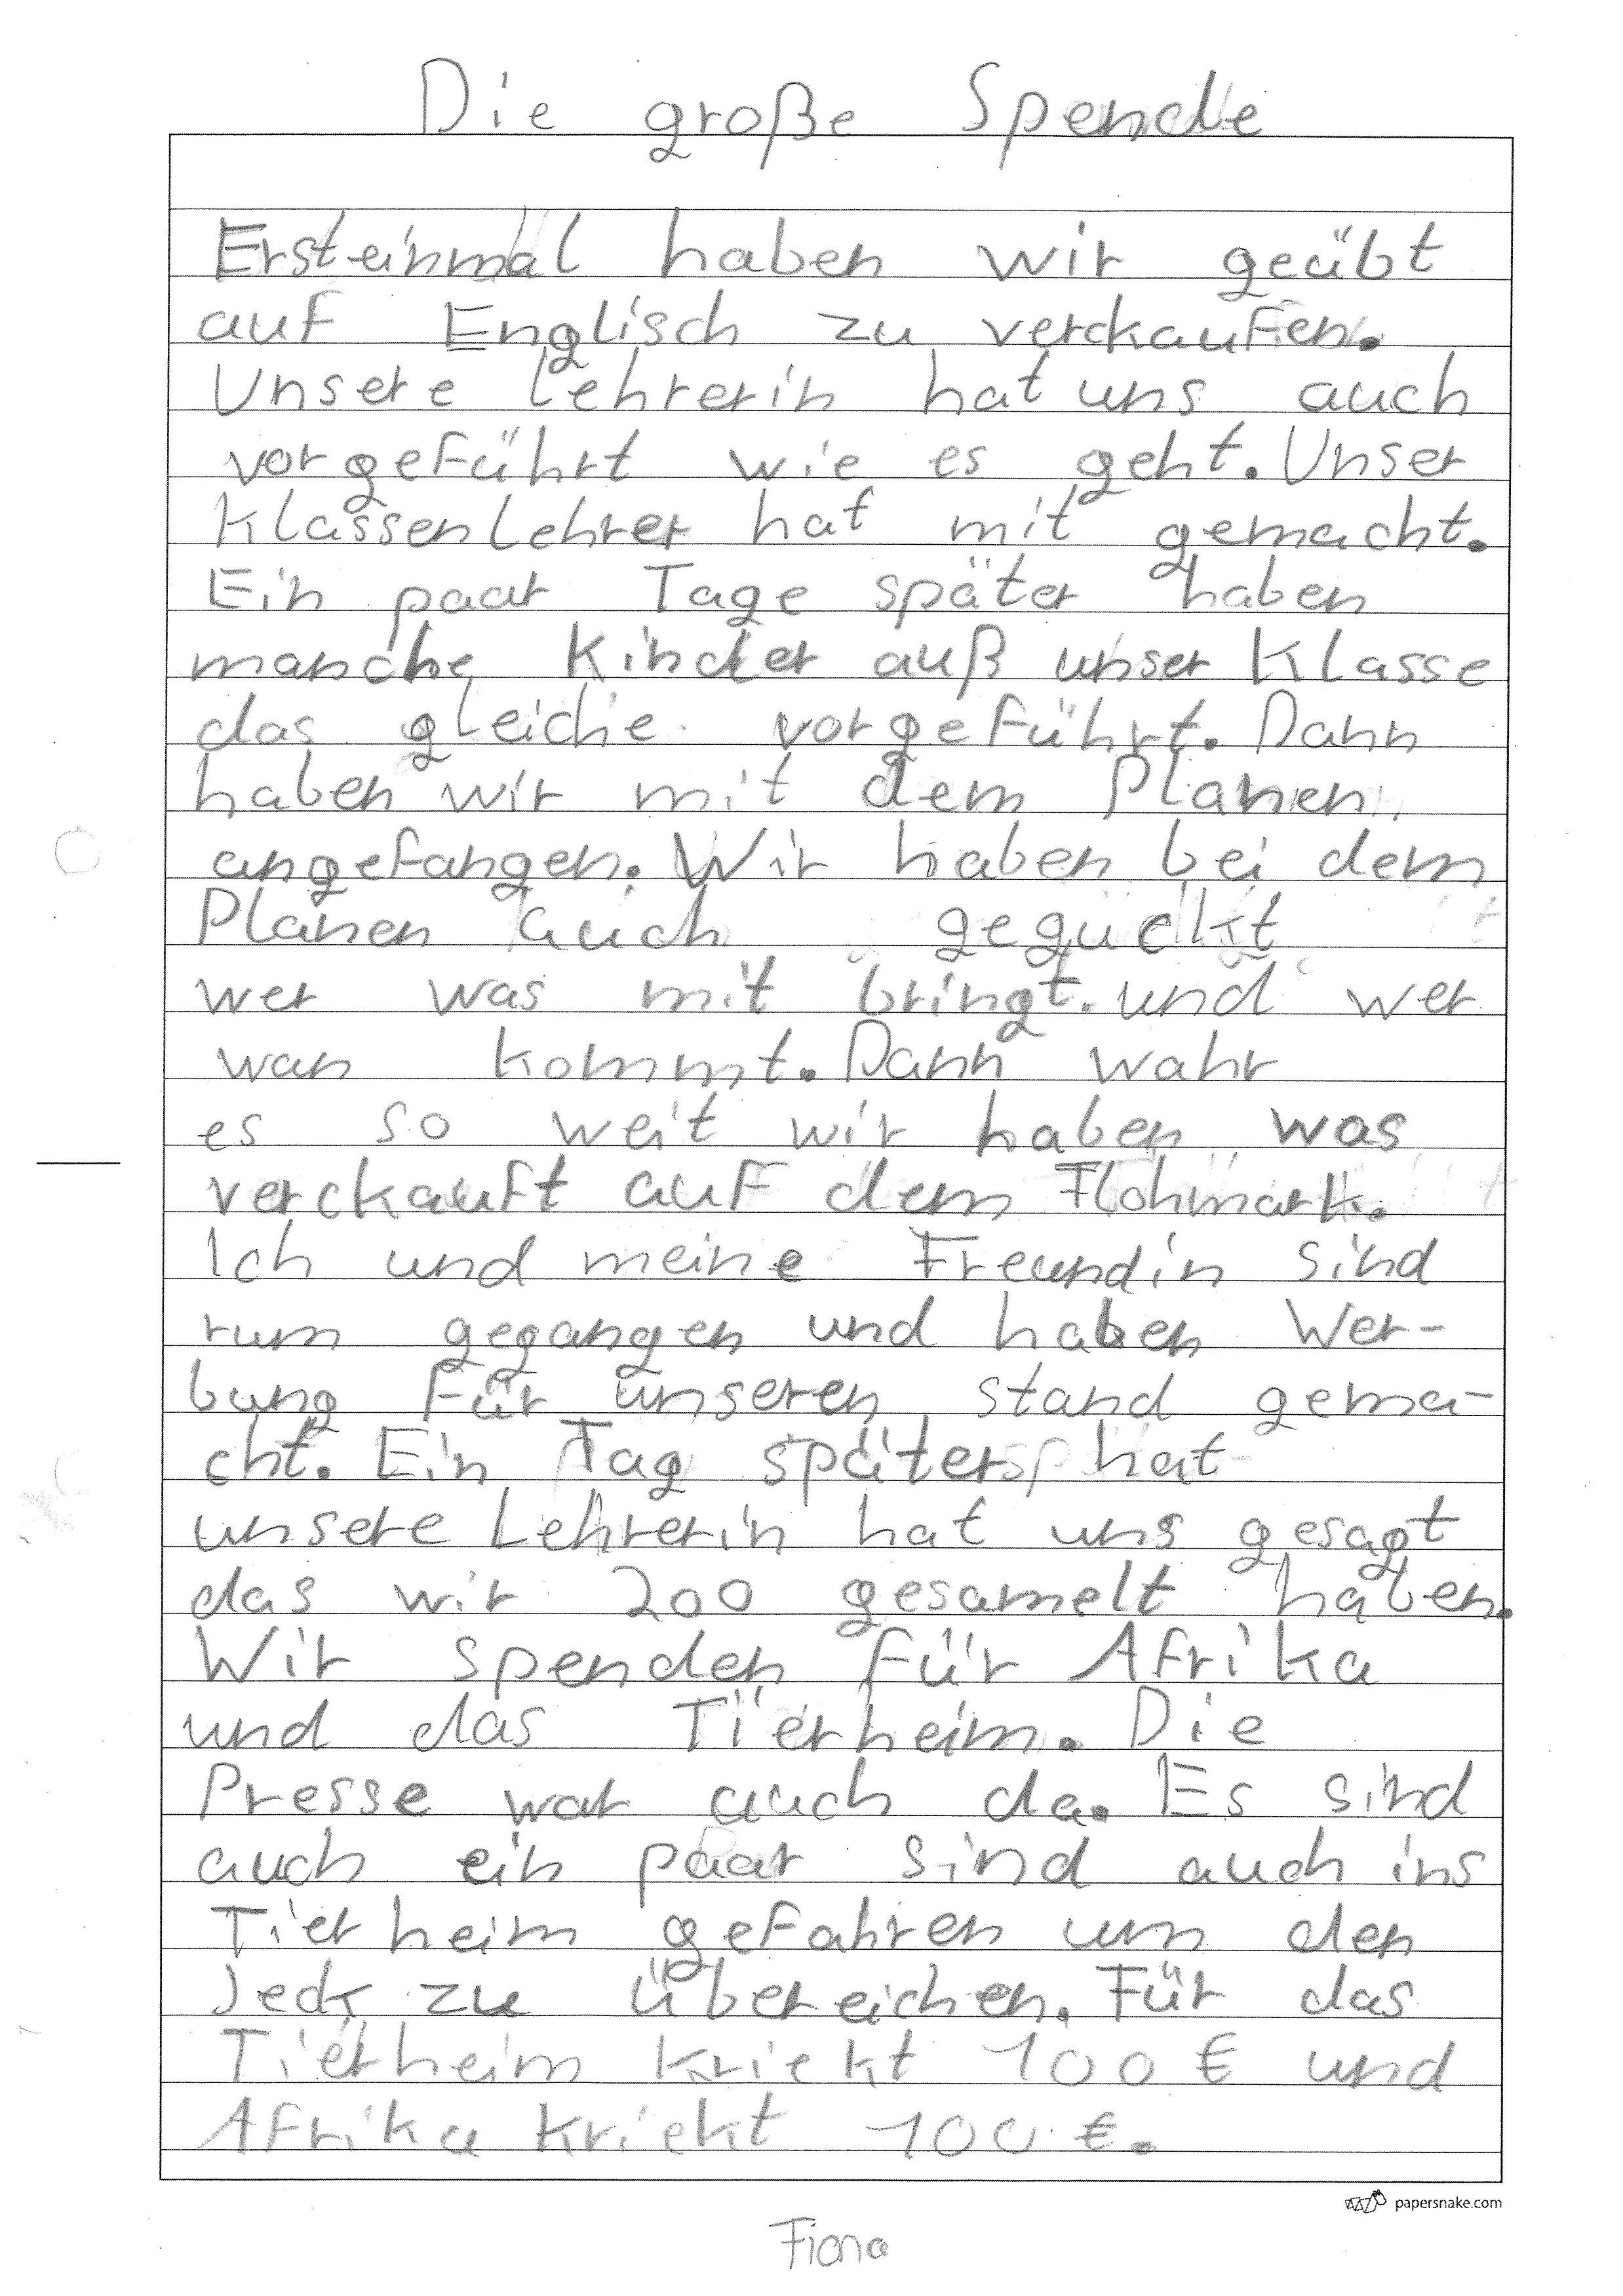 Die große Spende
Ersteinmal haben wir geübt
auf Englisch zu verckaufen.
Unsere Lehrerin hat uns auch
vorgeführt wie es geht. Unser
Klassenlehrer hat mit gemacht.
Ein paar Tage später haben
manche Kinder auß unser Klasse
das gleiche vorgeführt. Dann
haben wir mit dem Planen
angefangen. Wir haben bei dem
Planen auch geguckt
wer was mit bringt. und wer
wan kommt. Dann wahr
es so weit wir haben was
verckauft auf dem Flohmark.
Ich und meine Freundin sind
rum gegangen und haben Wer-
bung für unseren stand gema-
cht. Ein Tag später hat
unsere Lehrerin hat uns gesagt
das wir 200 gesamelt haben.
Wir spenden für Afrika
und das Tierheim. Die
Presse war auch da. Es sind
auch ein paar sind auch ins
Tierheim gefahren um den
Jeck zu übereichen. Für das
Tierheim kriekt 100 € und
Afrika kriekt 100 €.
papersnake.com
Fiona